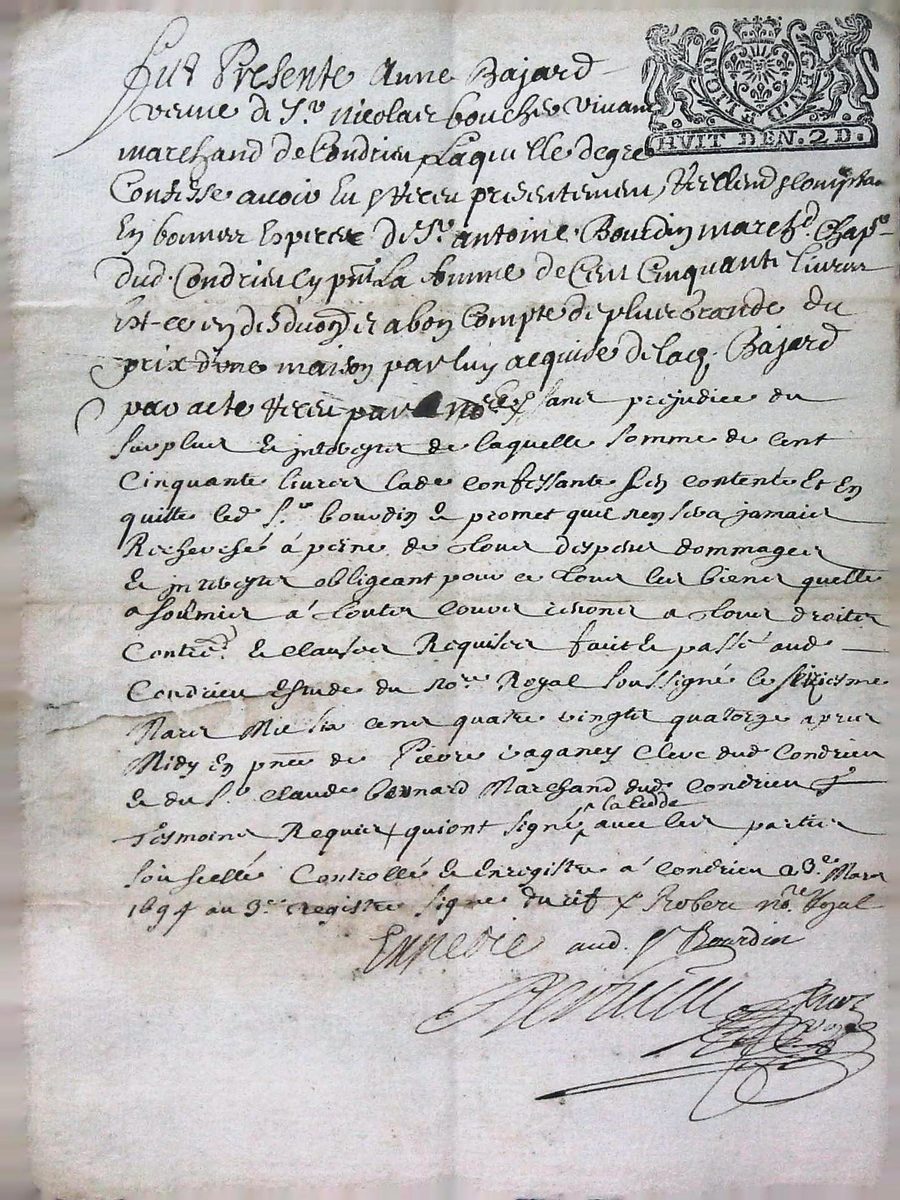 GEN.D LION
HUIT DEN. 2 D.
Fut Presente Anne Bajard
veuve de Sr. nicolas bouchet vivant
marchand de Condrieu Laquelle de gre
Confesse avoir Eu & Receu presentement &
En bonnes Especes de Sr. antoine Bourdin march.d Chap.
dud. Condrieu cy pnt La somme de Cent Cinquante livres
Et ce en deduon & a bon Compte de plus Grande du
prix d'une maison par luy acquise de lad. Bajard
par acte Receu par no.re sans prejudice du
surplus & interests de laquelle somme de cent
Cinquante livres lad. confessante sen contente Et En
quitte led. Sr. bourdin & promet que nen sera jamais
Recherché à peine de tous despens dommages
& interests obligeant pour ce tous ses biens quelle
a soumis à toutes cours a tous droits
Contr. & clauses Requises fait & passé aud.
Condrieu Estude du No.re Royal soussigné le seiziesme
Mars Mil six cens quatre vingts quatorze apres
Midy En pnce de Pierre vaganey Clerc dud. Condrieu
& du Sr. claude bernard Marchand dud. Condrieu
Tesmoins Requis qui ont signé avec les parties
la cedde
Controllé & Enregistré à Condrieu 3e Mars
1694 au 3e registre signe Robert no.re Royal
Expedié aud. Sr Bourdin